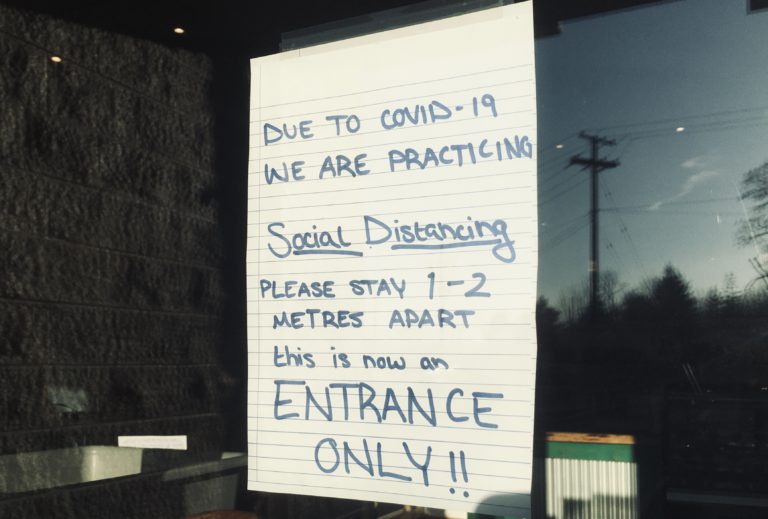 DUE TO COVID-19
WE ARE PRACTICING
Social Distancing
PLEASE STAY 1-2
METRES APART
this is now an
ENTRANCE
ONLY!!